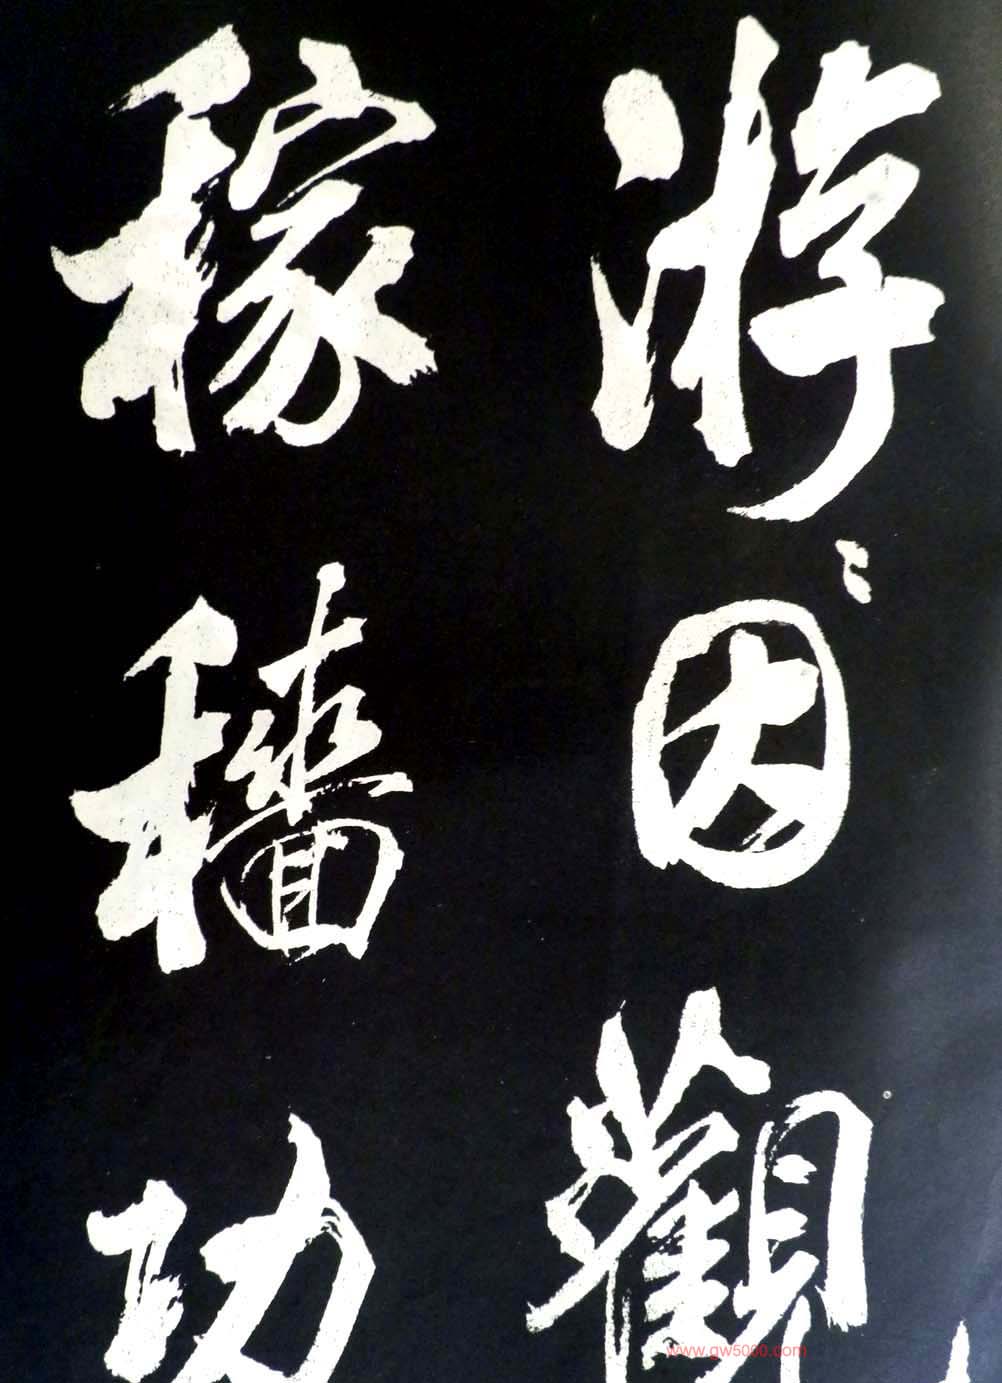 游〻因觀
稼穡功
www.gw5000.com